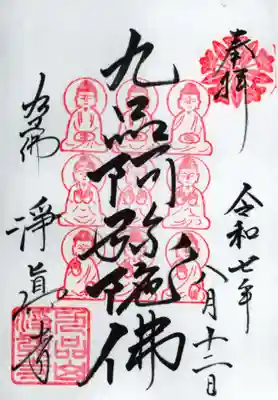 奉拝
令和七年
八月十二日
九品阿弥陀佛
九品佛
淨眞寺